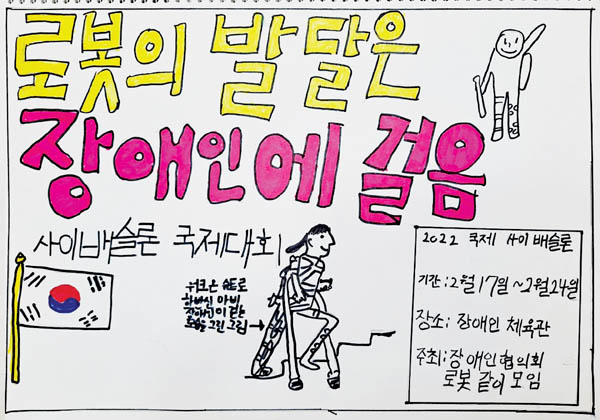 로봇의 발달은
장애인에 걸음
사이배슬론 국제대회
워크온 슈트로
하반신 마비
장애인이 걷는
모습을 그린 그림
2022 국제 사이배슬론
기간: 2월 17일 ~ 2월 24일
장소: 장애인 체육관
주최: 장애인 협의회
로봇 같이 모임